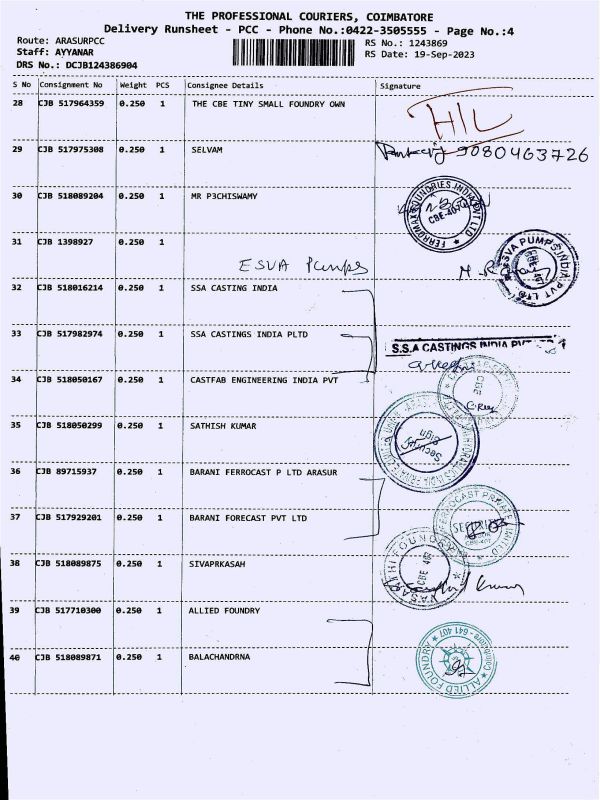 THE PROFESSIONAL COURIERS, COIMBATORE
Delivery Runsheet - PCC - Phone No.:0422-3505555 - Page No.:4
Route: ARASURPCC RS No.: 1243869
Staff: AYYANAR RS Date: 19-Sep-2023
DRS No.: DCJB124386904
S No Consignment No Weight PCS Consignee Details Signature
28 CJB 517964359 0.250 1 THE CBE TINY SMALL FOUNDRY OWN
H/L
29 CJB 517975308 0.250 1 SELVAM 9080463726
30 CJB 518089204 0.250 1 MR P3CHISWAMY
FERROMAX FOUNDRIES INDIA PVT LTD
CBE-407
31 CJB 1398927 0.250 1
ESVA Pumps
ESVA PUMPS INDIA PVT LTD
32 CJB 518016214 0.250 1 SSA CASTING INDIA
33 CJB 517982974 0.250 1 SSA CASTINGS INDIA PLTD
S.S.A CASTINGS INDIA PVT
34 CJB 518050167 0.250 1 CASTFAB ENGINEERING INDIA PVT
CBE
35 CJB 518050299 0.250 1 SATHISH KUMAR
Security
Sign
36 CJB 89715937 0.250 1 BARANI FERROCAST P LTD ARASUR
37 CJB 517929201 0.250 1 BARANI FORECAST PVT LTD
FERROCAST PRIME
SECURITY
CBE-407
38 CJB 518089875 0.250 1 SIVAPRKASAH
FOUNDRY
CBE 407
Kumar
39 CJB 517710300 0.250 1 ALLIED FOUNDRY
40 CJB 518089871 0.250 1 BALACHANDRNA
ALLIED FOUNDRY
Coimbatore - 641 407